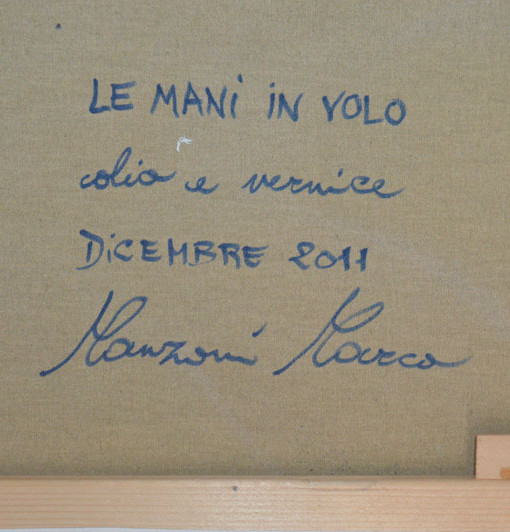 LE MANi iN VOLO
olio e vernice
DiCEMBRE 2011
Manzoni Marco